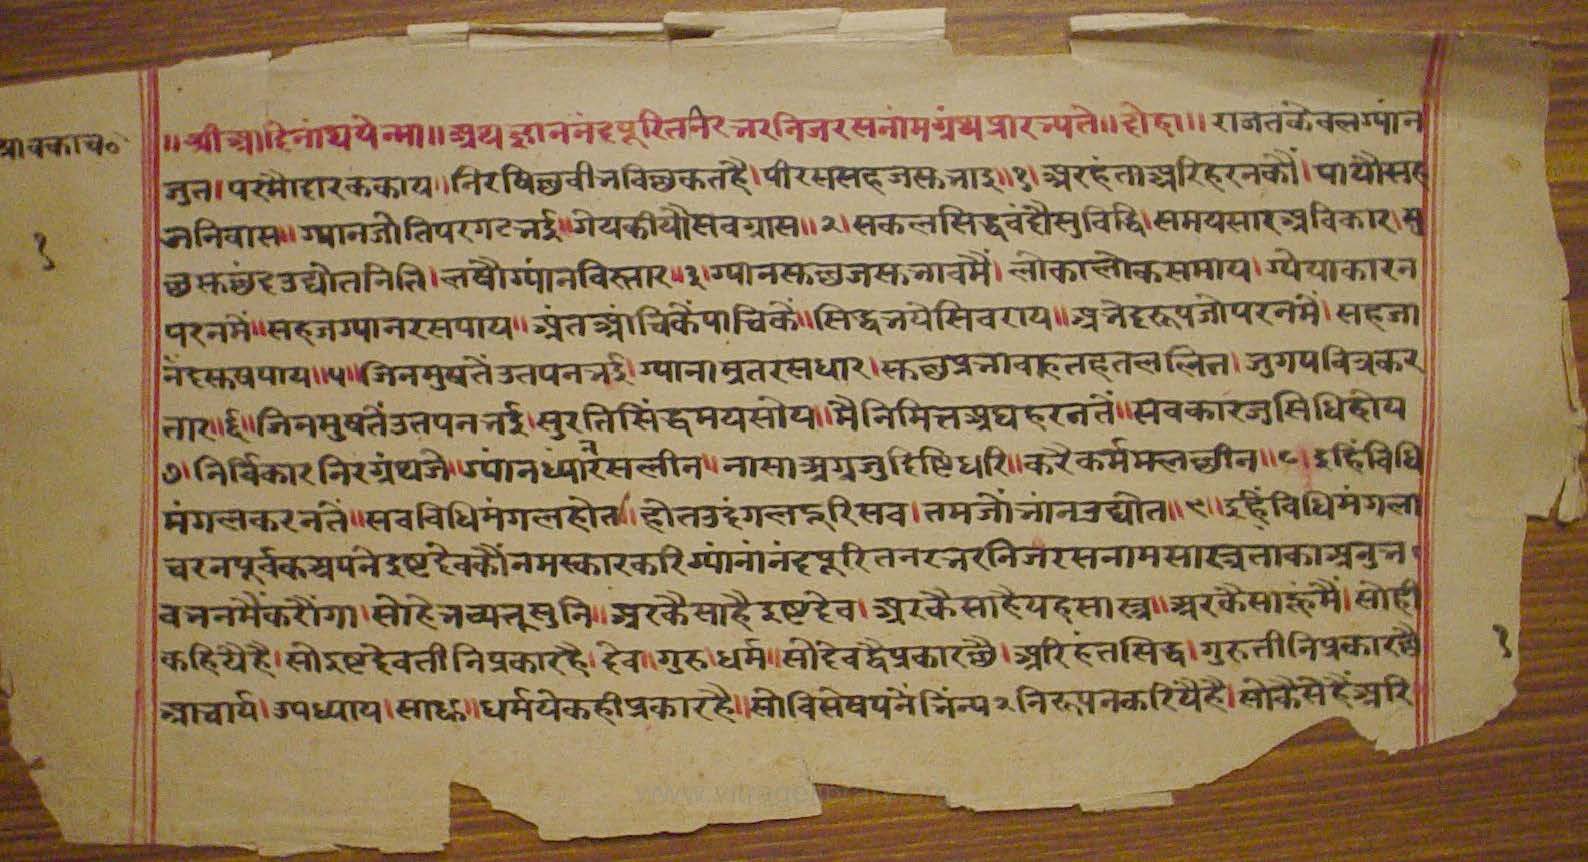 श्रावकाच॰
॥श्री॥ दिनाथयेन्मा॥ अथ ज्ञाननंदपूरितनिरभरनिजरसनांमग्रंथप्रारभ्यते॥ दोहा॥ राजतकेवलग्यांन
जुत। परमौदारककाय॥ निरषिछवीभविछकतहै। पीरससहजसुभाइ॥१॥ अरहंताअरिहरनकौं। पायौसह
जनिवास॥ ग्यानजोतिपरगटभई॥ गेयकीयौसवग्रास॥२। सकलसिद्धवंदौसुविद्दि। समयसारअविकार। सु
छसुछंदउद्योतनिति। लषौग्यांनविस्तार॥३॥ ग्यानसुछजसुभावमैं। लोकालोकसमाय। ग्येयाकारन
परनमें॥ सहजग्यानरसपाय॥ अंतआंचिकेंपाचिकें॥ सिद्धभयेसिवराय॥ अभेदरूपजोपरनमें। सहजा
नंदसुषपाय॥५॥ जिनमुषतेंउतपनभई। ग्यानामृतरसधार। सुछप्रभावाहतहतललित। जुगपवित्रकर
तार॥६॥ जिनमुषतेंउतपनभई। सुरतिसिंद्धमयसोय॥ मैनिमित्तअघहरनतें॥ सवकारजुसिधिहोय
७॥ निर्विकारनिरग्रंथजे॥ ग्यांनध्यांनरसलीन॥ नासाअग्रजुदिष्टिधरि॥ करेकर्ममलछीन॥८॥ इहिंविधि
मंगलकरनतें॥ सवविधिमंगलहोत॥ होतउदंगलदूरिसव। तमजोंभांनउद्योत॥९॥ इहिंविधिमंगला
चरनपूर्वकअपनेइष्टदेवकौंनमस्कारकरिग्यांनांनंदपूरितनरभरनिजरसनामसास्त्रताकाअनुभ
वननमैंकरौंगा। सोहेभव्यतूसुनि॥ अरकैसाहैइष्टदेव। अरकैसाहैयहसास्त्र॥ अरकैसाहूंमैं। सोही
कहियेहै। सोइष्टदेवतीनिप्रकारहै। देव॥ गुरु। धर्म॥ सोदेवद्वैप्रकारछै। अरिहंतसिद्ध। गुरुतीनिप्रकारछै
आचार्य। उपध्याय। साधु॥ धर्मयेकहीप्रकारहै॥ सोविसेषपनेंभिंन्य२निरूपनकरियैहै। सोकैसेहैंअरि
१
१